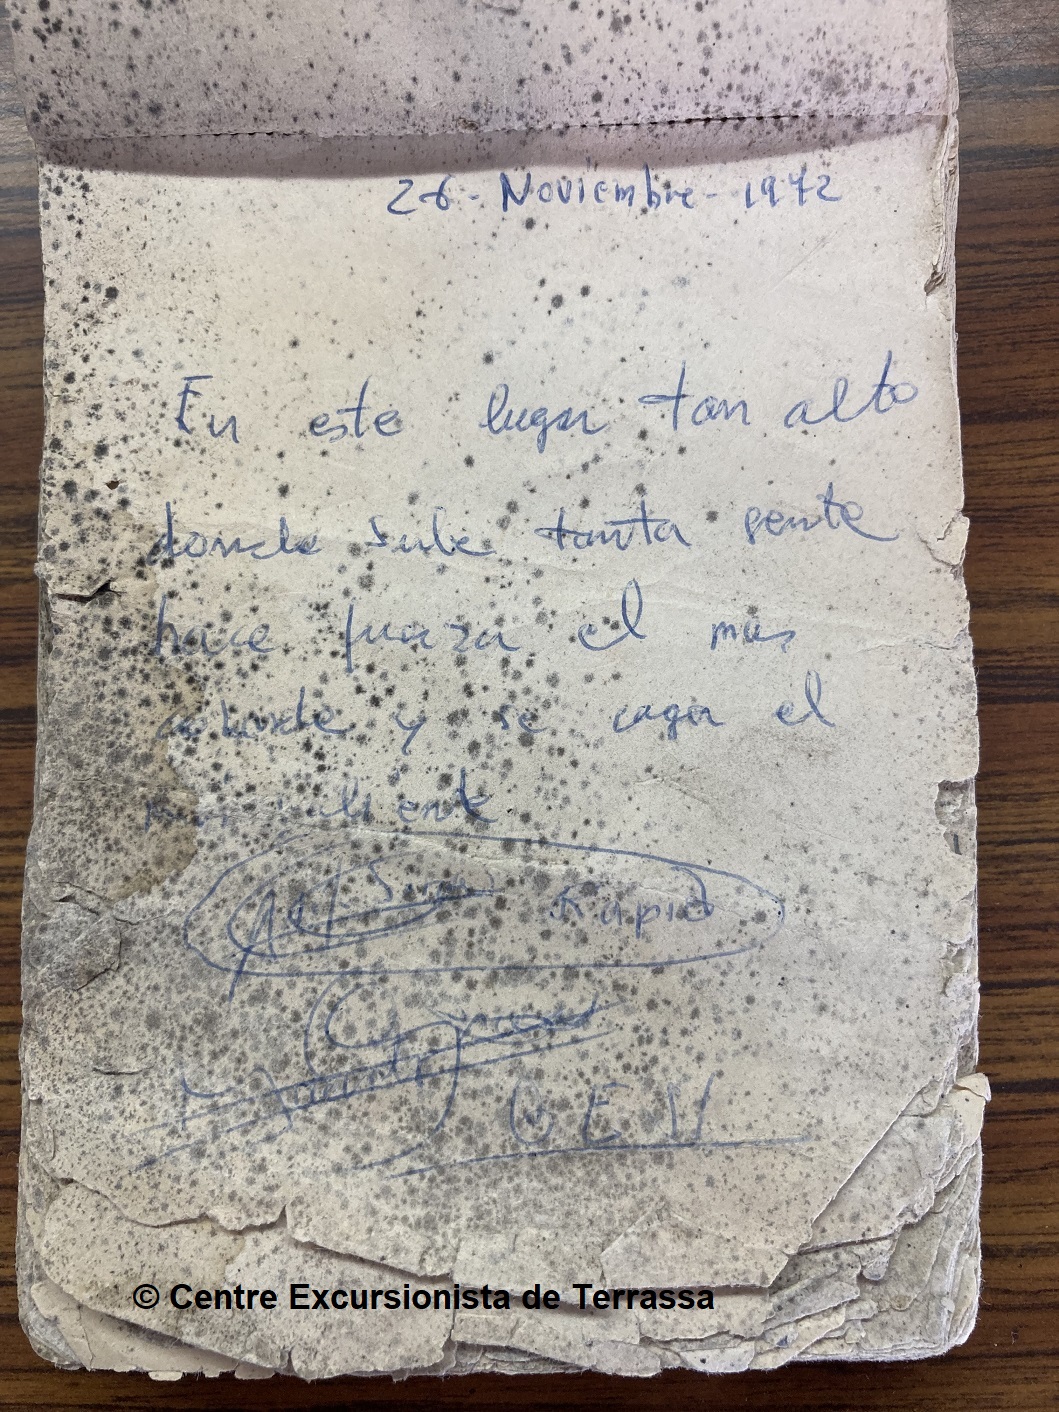 26-Noviembre-1972
En este lugar tan alto
donde sube tanta gente
hace fuerza el mas
cobarde y se caga el
mas valiente
Rapid
© Centre Excursionista de Terrassa